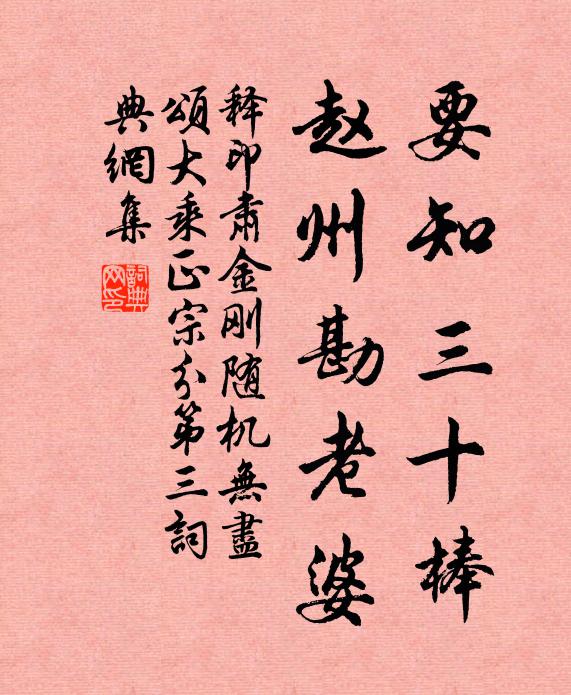 要知三十棒
赵州勘老婆
释印肃金刚随机無盡
頌大乘正宗分第三詞
典網集
詞典
网印